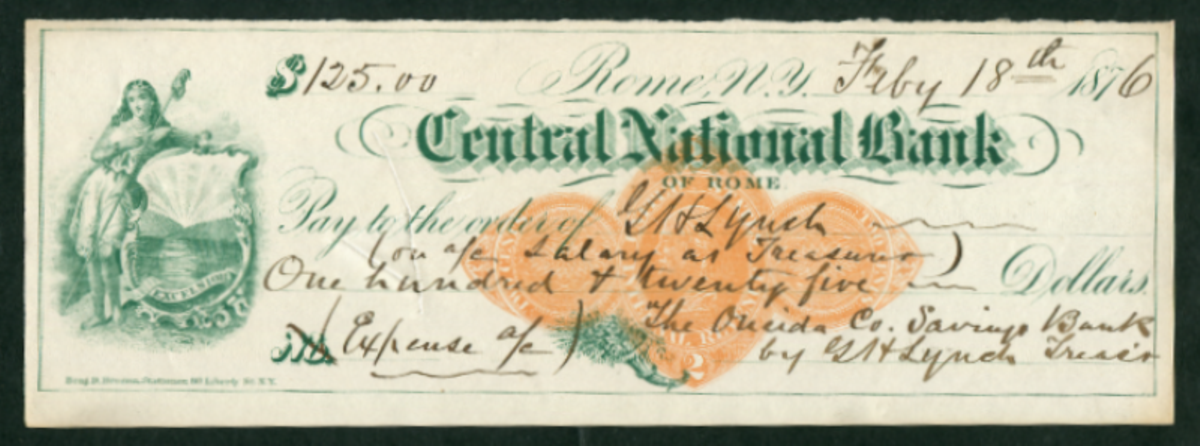 $125.00 Rome, N.Y. Feby 18th 1876
Central National Bank
OF ROME
Pay to the order of G H Lynch
(on a/c Salary as Treasurer)
One hundred & twenty five Dollars.
The Oneida Co. Savings Bank
No. (Expense a/c)
by G H Lynch Treas'r
EXCELSIOR
2
Liberty St. N.Y.